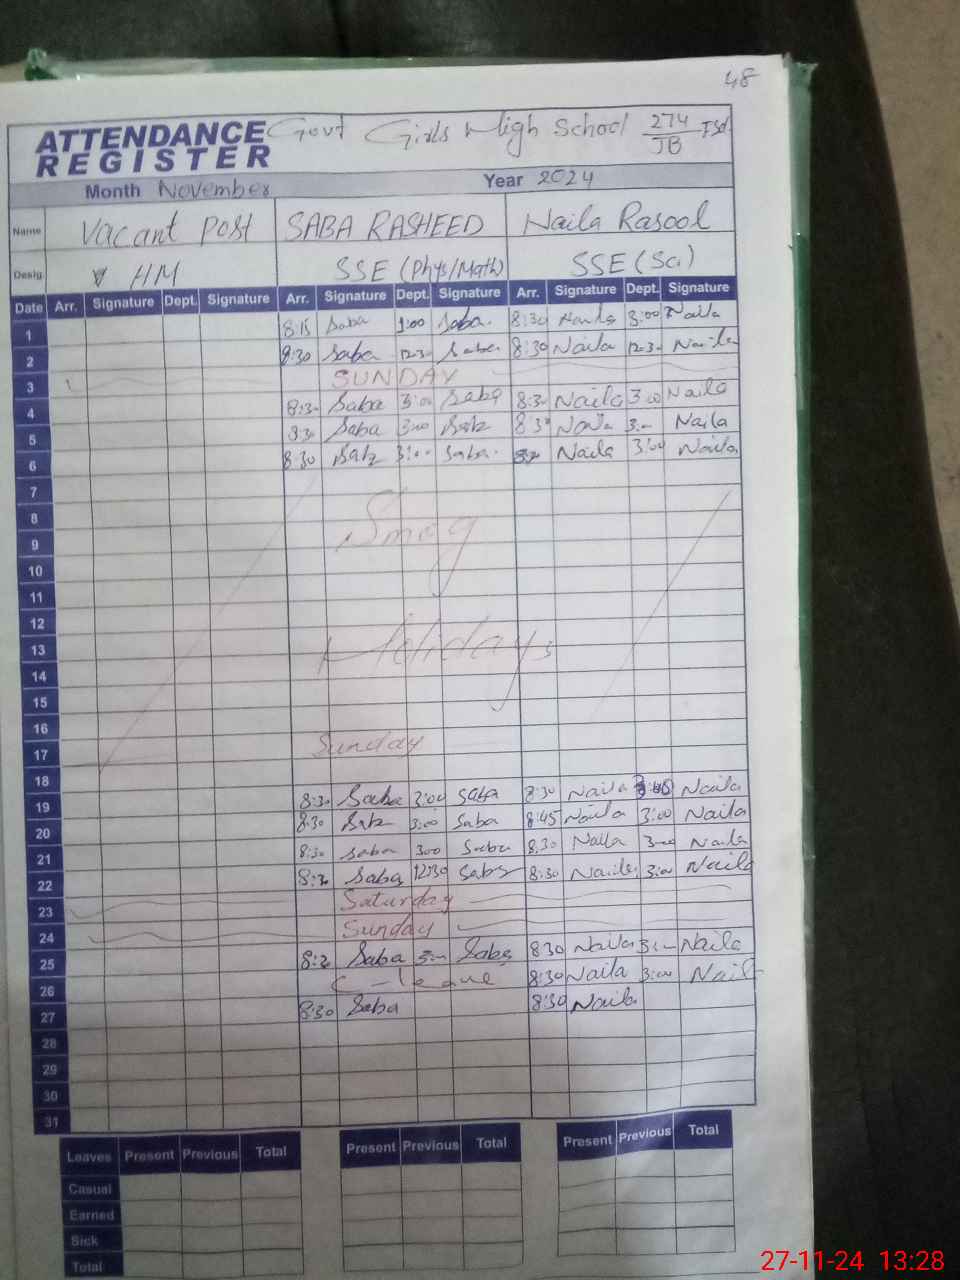 48
ATTENDANCE REGISTER Govt Girls High School 274/JB Fsd.
Month November Year 2024
Name Vacant Post SABA RASHEED Naila Rasool
Desig. HM SSE (Phys/Math) SSE (Sc.)
Date Arr. Signature Dept. Signature Arr. Signature Dept. Signature Arr. Signature Dept. Signature
1 8:15 Saba 1:00 Saba. 8:30 Naila 3:00 Naila
2 8:30 Saba 12:30 Saba 8:30 Naila 12:30 Naila
3 SUNDAY
4 8:30 Saba 3:00 Saba 8:30 Naila 3:00 Naila
5 8:30 Saba 3:00 Saba 8:30 Naila 3:00 Naila
6 8:30 Saba 3:00 Saba. Naila 3:00 Naila
7
8 Smog
9
10
11
12
13 Holidays
14
15
16
17 Sunday
18
19 8:30 Saba 3:00 Saba 8:30 Naila Naila
20 8:30 Saba 3:00 Saba 8:45 Naila 3:00 Naila
21 8:30 Saba 3:00 Saba 8:30 Naila 3:00 Naila
22 8:30 Saba 12:30 Saba 8:30 Naila 3:00 Naila
23 Saturday
24 Sunday
25 8:30 Saba 3:00 Saba 8:30 Naila 3:00 Naila
26 C-leave 8:30 Naila 3:00 Naila
27 8:30 Saba 8:30 Naila
28
29
30
31
Leaves Present Previous Total Present Previous Total Present Previous Total
Casual
Earned
Sick
Total
27-11-24 13:28